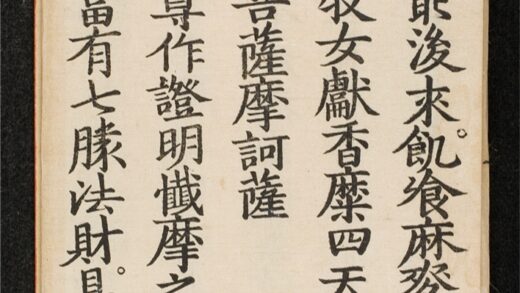 後來。飢飡麻麥
牧女獻香糜四天
菩薩摩訶薩
尊作證明懺摩之
富有七勝法財具